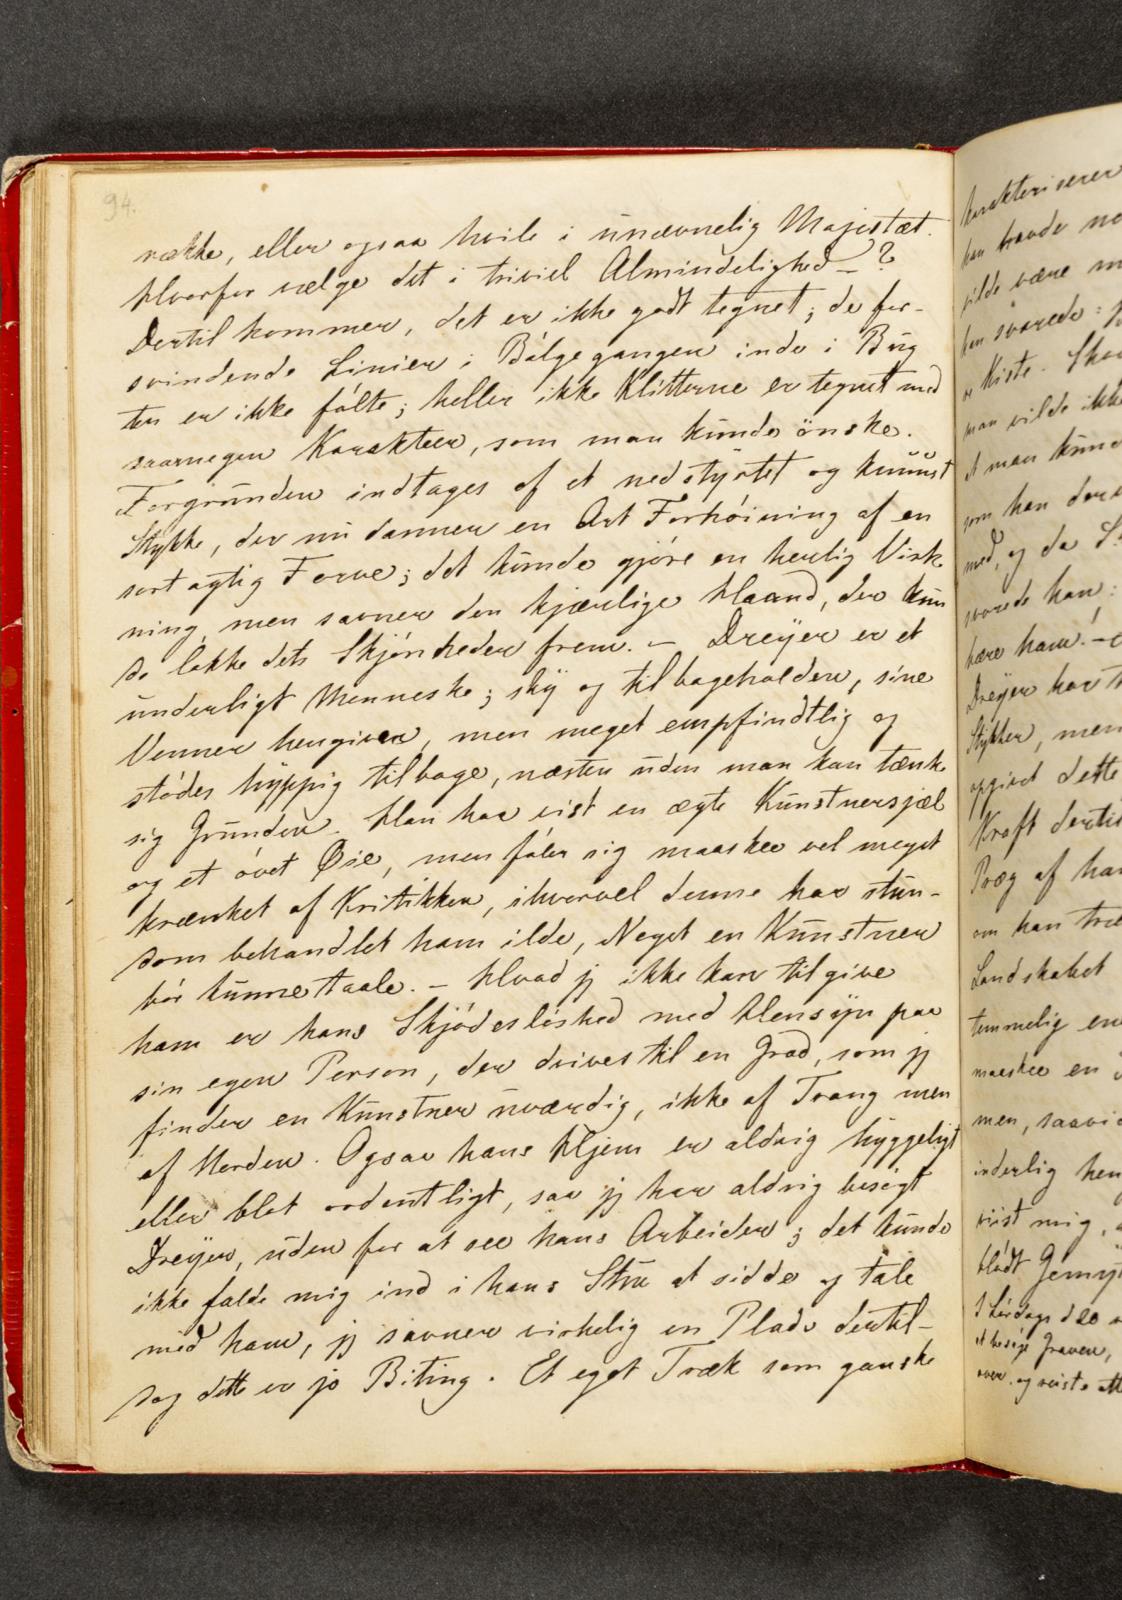 94.
række, eller ogsaa hvile i unævnelig Majestæt.
Hvorfor vælge det i triviel Almindelighed – ?
Dertil kommer, det er ikke godt tegnet; de for-
svindende Linier i Bölgegangen inde i Bug
ten er ikke fölte; heller ikke Klitterne er tegnet med
saamegen Karakteer, som man kunde önske.
Forgrunden indtages af et nedstyrtet og knuust
Stykke, der nu danner en Art Forhöining af en
sort agtig Farve; det kunde gjöre en herlig Virk
ning, men savner den kjærlige Haand, der kun
de lokke dets Skjönheder frem. – Dreyer er et
underligt Menneske; sky og tilbageholden, sine
Venner hengiven, men meget empfindtlig og
stödes hyppig tilbage, næsten uden man kan tænke
sig Grunden. Han har vist en ægte Kunstnersjæl
og et övet Øie, men föler sig maaskee vel meget
krænket af Kritikken, ihvorvel denne har stun-
dom behandlet ham ilde, Noget en Kunstner
bör kunne taale. – Hvad jeg ikke kan tilgive
ham er hans Skjödeslöshed med Hensyn paa
sin egen Person, der drives til en Grad, som jeg
finder en Kunstner uværdig, ikke af Trang men
af Norden. Ogsaa hans Hjem er aldrig hyggeligt
eller blot ordentligt, saa jeg har aldrig besögt
Dreyer, uden for at see hans Arbeider; det kunde
ikke falde mig ind i hans Stue at sidde og tale
med ham, jeg savner virkelig en Plads dertil –
dog dette er jo Biting. Et eget Træk som ganske
karakteriserer
han havde
vilde være
han svarede:
Kiste.
man vilde ikke
at man kunde
som han
med, og da
svarede han:
bære ham! –
Dreyer har
Stykker, men
opgivet dette
Kraft dertil
Præg af
om han
Landskabet
temmelig en
maaskee en
men,
inderlig
viist mig,
blödt
at besöge Graven,